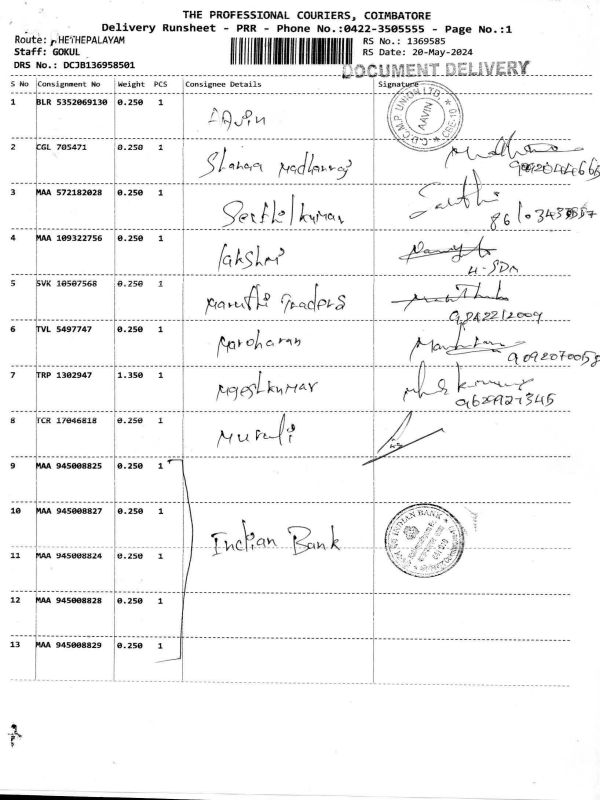 THE PROFESSIONAL COURIERS, COIMBATORE
Delivery Runsheet - PRR - Phone No.:0422-3505555 - Page No.:1
Route: HETHEPALAYAM RS No.: 1369585
Staff: GOKUL RS Date: 20-May-2024
DRS No.: DCJB136958501 DOCUMENT DELIVERY
S No Consignment No Weight PCS Consignee Details Signature
1 BLR 5352069130 0.250 1 C.D.C.M.P UNION LTD. AAVIN
2 CGL 705471 0.250 1
3 MAA 572182028 0.250 1 Senthilkumar
4 MAA 109322756 0.250 1 lakshmi
5 SVK 10507568 0.250 1 Maruthi Traders
9842212009
6 TVL 5497747 0.250 1 Manoharan
9092070058
7 TRP 1302947 1.350 1
9629927345
8 TCR 17046818 0.250 1 Murali
9 MAA 945008825 0.250 1
10 MAA 945008827 0.250 1
Indian Bank INDIAN BANK
11 MAA 945008824 0.250 1
12 MAA 945008828 0.250 1
13 MAA 945008829 0.250 1